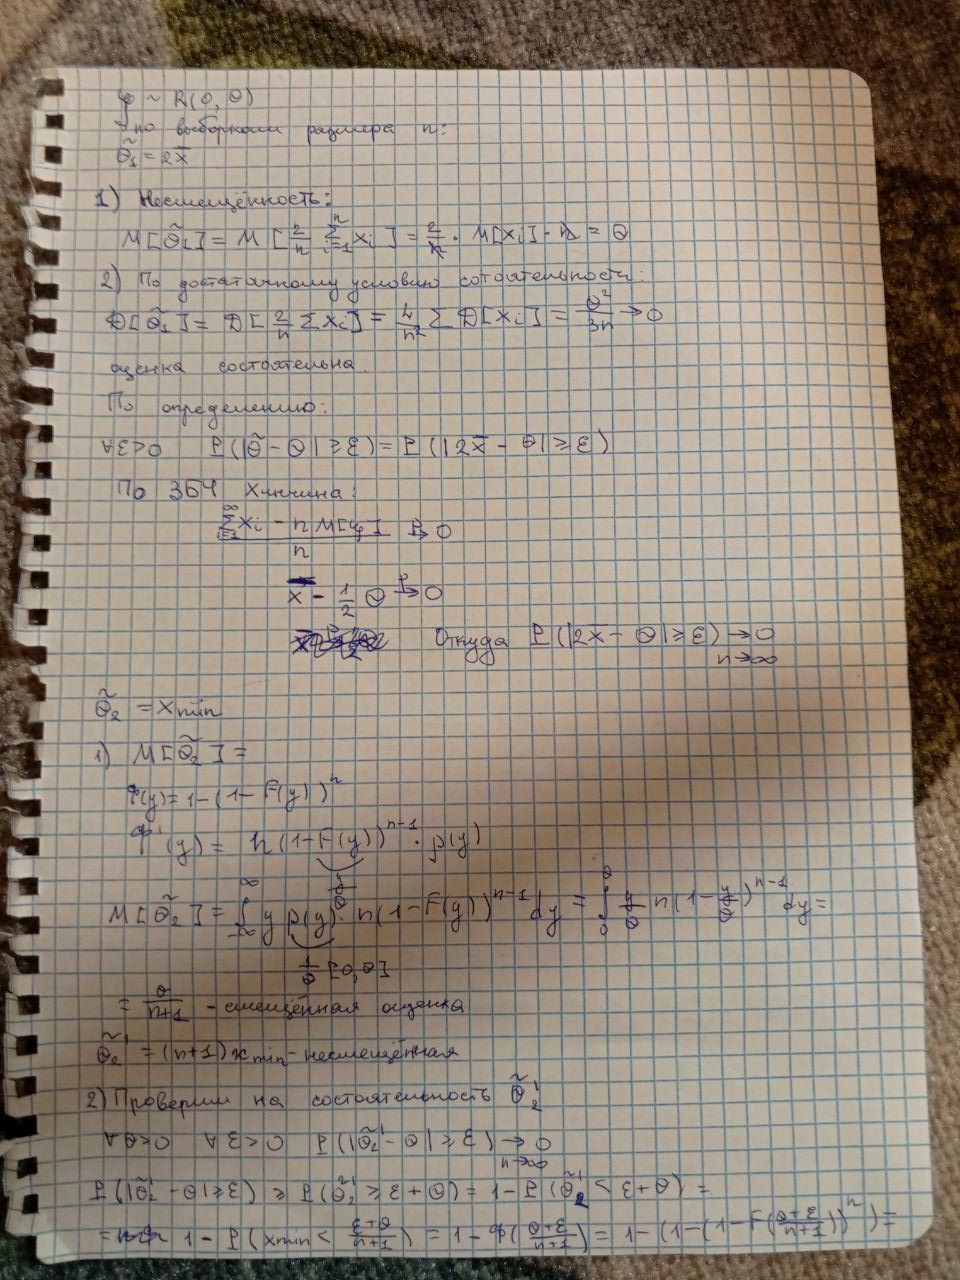 ξ ~ R(0, θ)
по выборкам размера n:
θ̃₁ = 2x̄
1) Несмещённость:
M[θ̃₁] = M[2/n Σᵢ₌₁ⁿ xᵢ] = 2/n · M[xᵢ] · n = θ
2) По достаточному условию сотоятельности:
D[θ̃₁] = D[2/n Σxᵢ] = 4/n² Σ D[xᵢ] = θ²/3n → 0
оценка состоятельна.
По определению:
∀ε>0 P(|θ̃ - θ| ≥ ε) = P(|2x̄ - θ| ≥ ε)
По ЗБЧ Хинчина:
(Σᵢ₌₁^∞ xᵢ - n M[ξ])/n →ᴾ 0
x̄ - 1/2 θ →ᴾ 0
Откуда P(|2x̄ - θ| ≥ ε) → 0 n→∞
θ̃₂ = xmin
1) M[θ̃₂] =
Φ(y) = 1 - (1 - F(y))ⁿ
Φ'(y) = n(1 - F(y))ⁿ⁻¹ · p(y)
y/θ
M[θ̃₂] = ∫₋∞^∞ y p(y) · n(1 - F(y))ⁿ⁻¹ dy = ∫₀^θ y/θ n(1 - y/θ)ⁿ⁻¹ dy =
1/θ [0, θ]
= θ/(n+1) - смещённая оценка
θ̃₂' = (n+1) xmin - несмещённая
2) Проверим на состоятельность θ̃₂'
∀θ>0 ∀ε>0 P(|θ̃₂' - θ| ≥ ε) → 0 n→∞
P(|θ̃₂' - θ| ≥ ε) ≥ P(θ̃₂' ≥ ε + θ) = 1 - P(θ̃₂' < ε + θ) =
= 1 - P(xmin < (ε+θ)/(n+1)) = 1 - Φ((θ+ε)/(n+1)) = 1 - (1 - (1 - F((θ+ε)/(n+1)))ⁿ) =